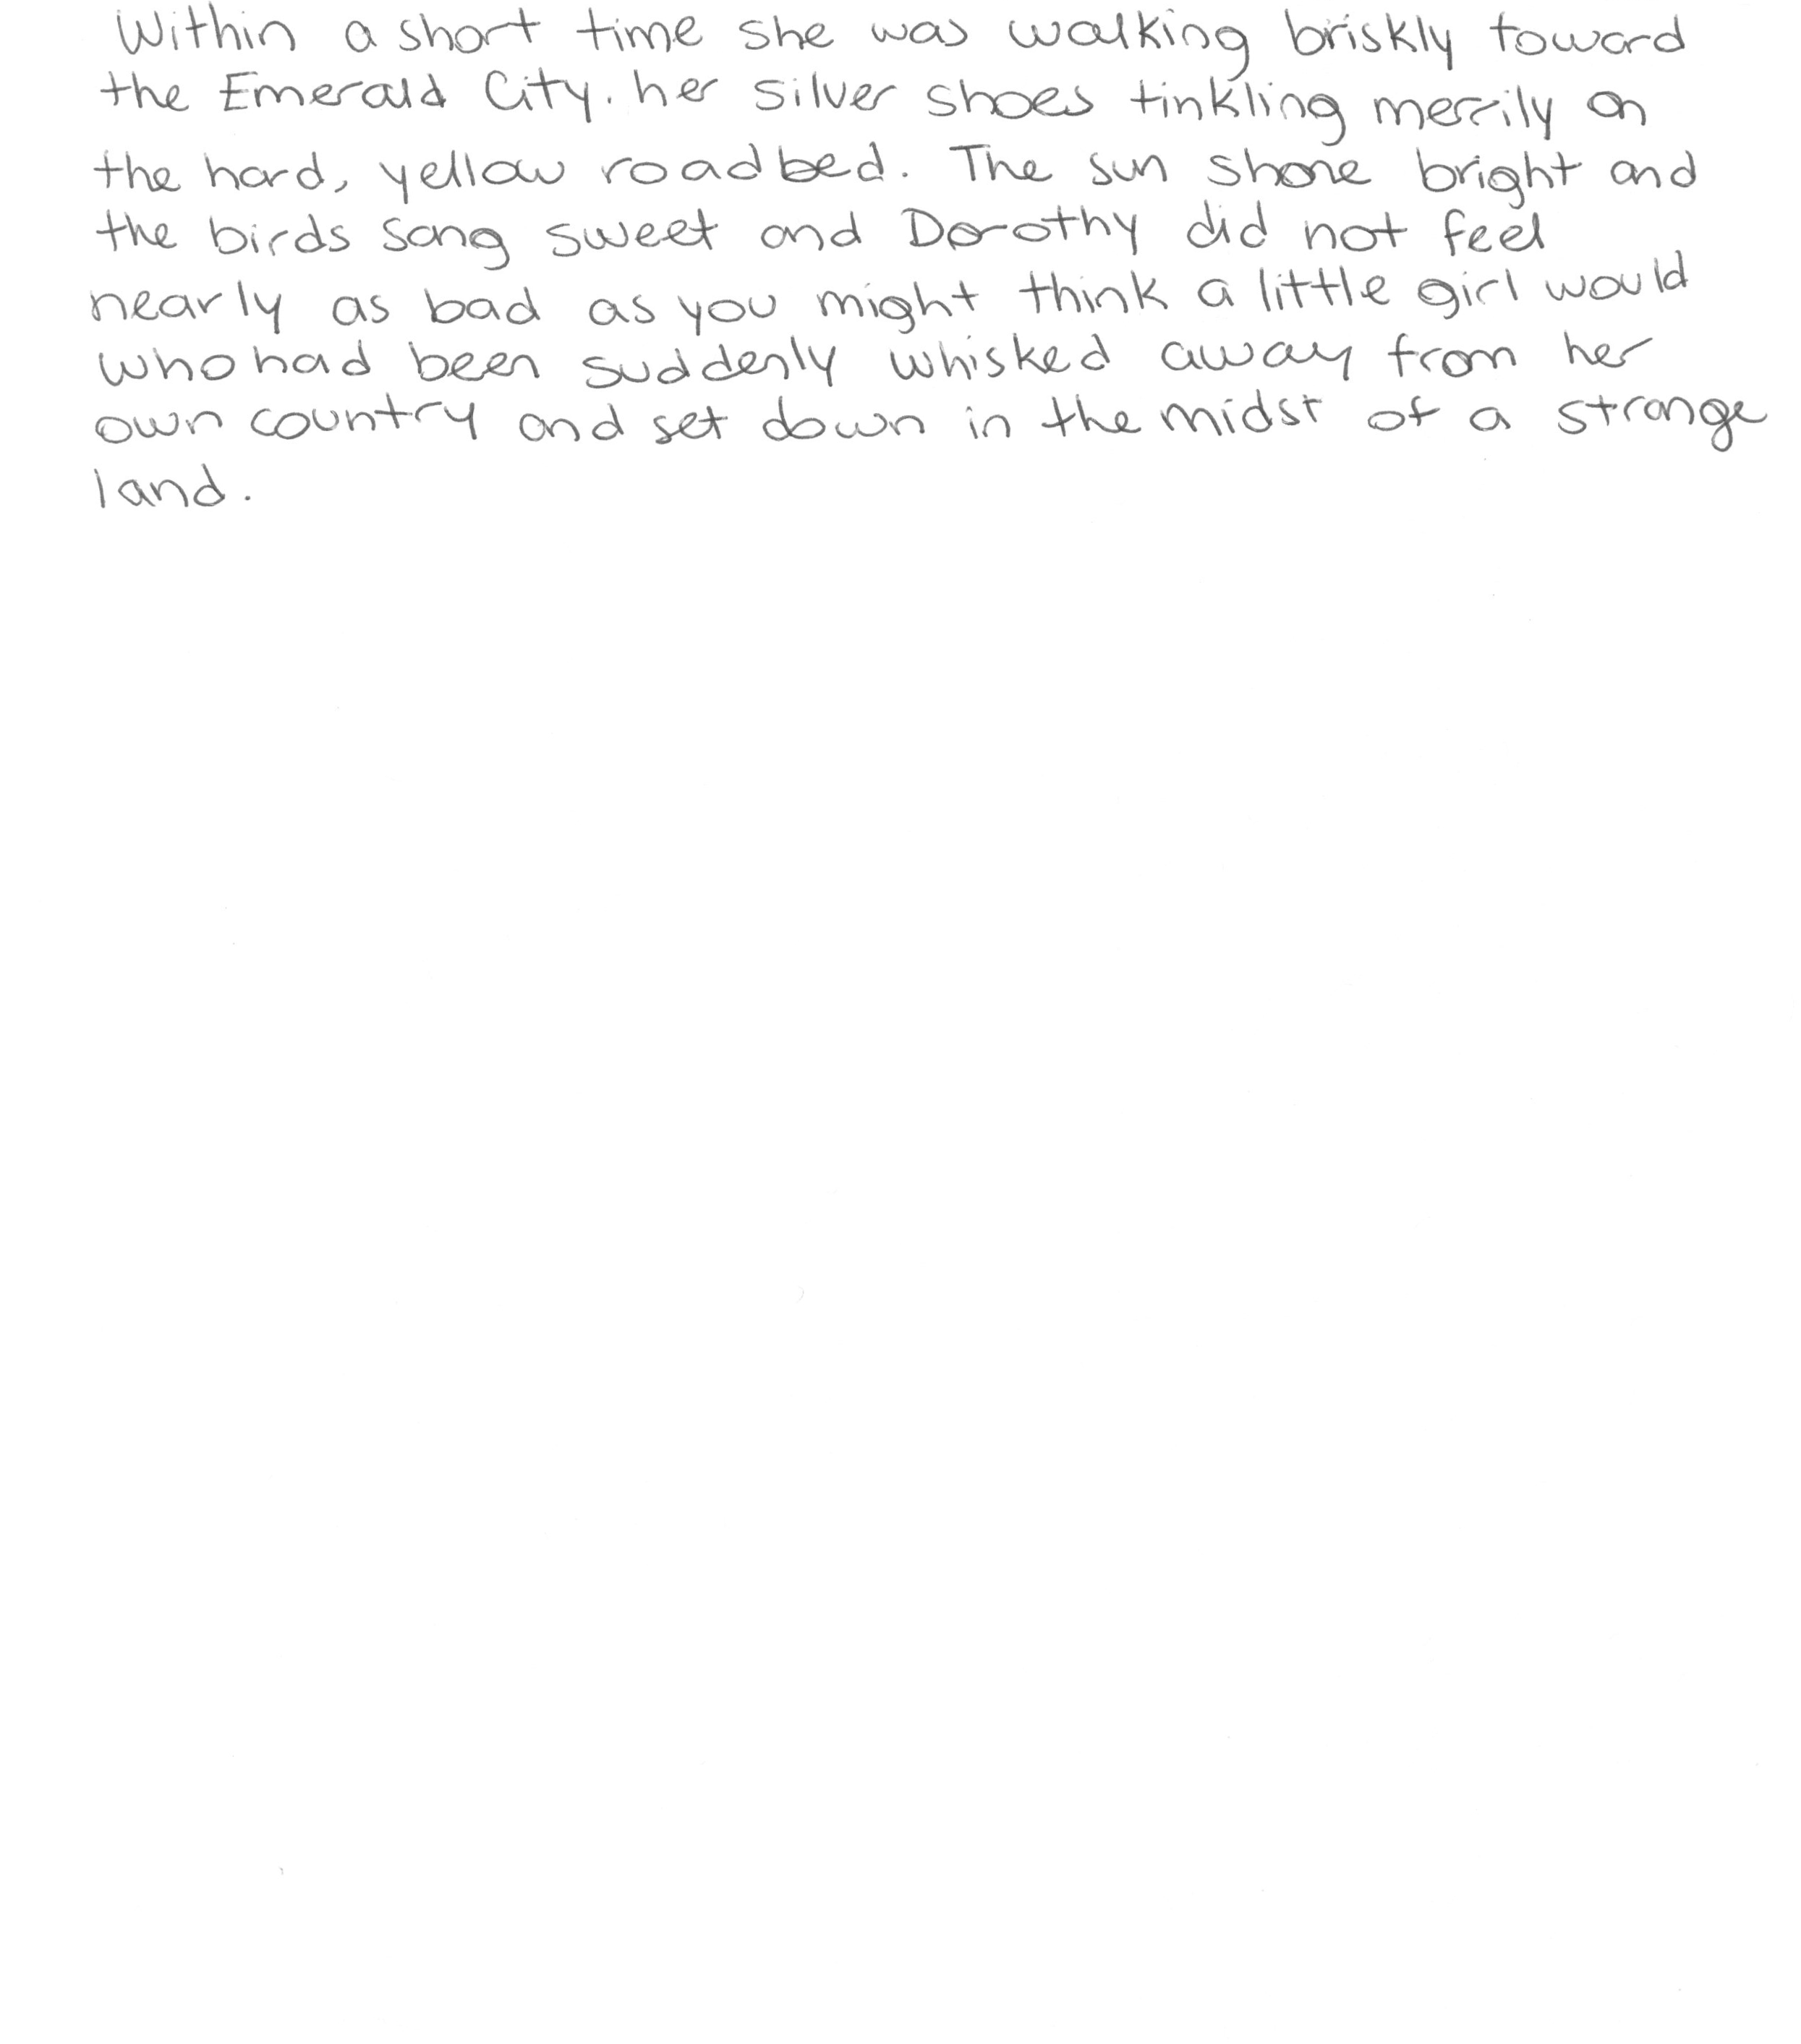 Within a short time she was walking briskly toward
the Emerald City. her silver shoes tinkling merrily on
the hard, yellow roadbed. The sun shone bright and
the birds sang sweet and Dorothy did not feel
nearly as bad as you might think a little girl would
who had been suddenly whisked away from her
own country and set down in the midst of a strange
land.